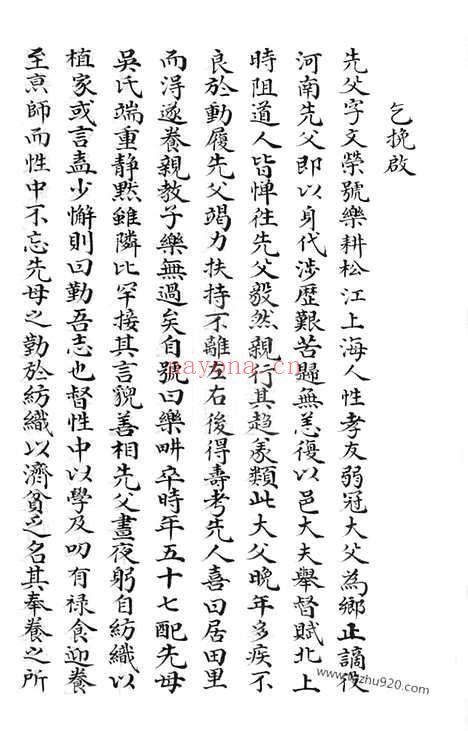 乞挽啟
先父字文榮號樂耕松江上海人性孝友弱冠大父為鄉正謫役
河南先父即以身代涉歷艱苦歸無恙復以邑大夫舉督賦北上
時阻道人皆憚徃先父毅然親行其趍義類此大父晚年多疾不
良於動履先父竭力扶持不離左右後得壽考先人喜曰居田里
而得遂養親教子樂無過矣自號曰樂畊卒時年五十七配先母
吳氏端重静黙雖隣比罕接其言貌善相先父晝夜躬自紡織以
植家或言盍少懈則曰勤吾志也督性中以學及叨有禄食迎養
至京師而性中不忘先母之勤於紡織以濟貧乏名其奉養之所
nayona.cn
www.nzhu920.com